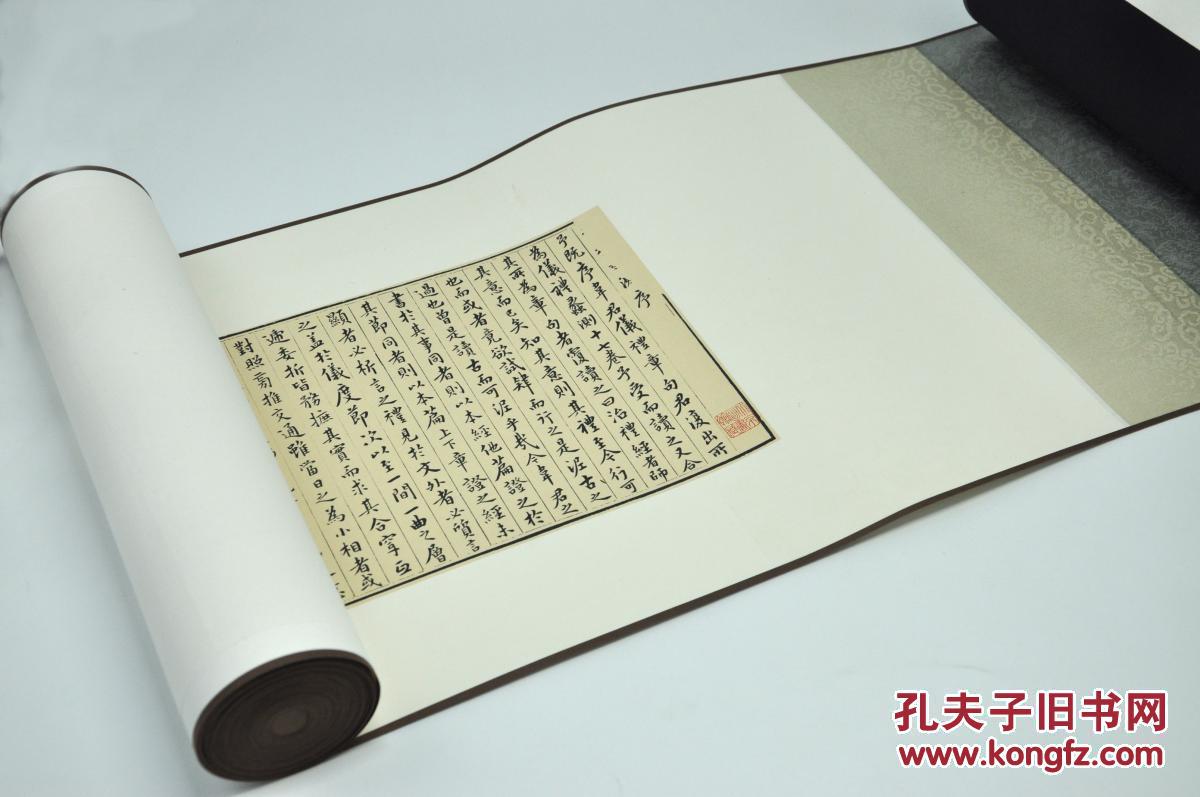 序
予既序韋君儀禮章句君復出所
為儀禮蠡測十七卷予受而讀之又合
其所為章句者覆讀之曰治禮經者師
其意而已矣知其意則其禮至今行可
也而或者竟欲試肄而行之是泥古之
過也曾是讀古而可泥乎哉今韋君之
書於其事同者則以本經他篇證之於
其節同者則以本篇上下章證之經未
顯者必析言之禮見於文外者必質言
之蓋於儀度節次以至一間一曲之層
遞委折皆務摭其實而求其合
對照旁推交通雖當日之為小相者或
孔夫子旧书网
www.kongfz.com